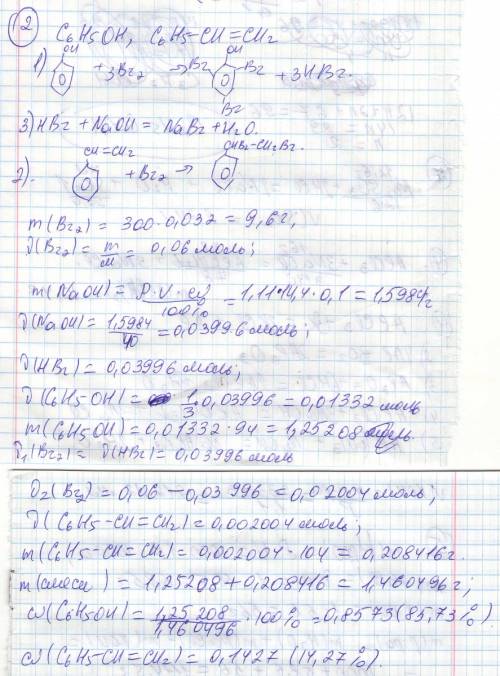 12
C6H5OH, C6H5-CH=CH2
OH OH
1) + 3Br2 → Br Br + 3HBr.
Br
3) HBr + NaOH = NaBr + H2O.
CH=CH2 CHBr-CH2Br.
2). + Br2 →
m(Br2) = 300·0,032 = 9,6г,
ϑ(Br2) = m/M = 0,06 моль;
m(NaOH) = ρ·V·ω/100% = 1,11·14,4·0,1 = 1,5984г
ϑ(NaOH) = 1,5984/40 = 0,03996 моль;
ϑ(HBr) = 0,03996 моль;
ϑ(C6H5-OH) = 1/3·0,03996 = 0,01332 моль
m(C6H5OH) = 0,01332·94 = 1,25208
ϑ1(Br2) = ϑ(HBr) = 0,03996 моль
ϑ2(Br2) = 0,06 - 0,03996 = 0,02004 моль;
ϑ(C6H5-CH=CH2) = 0,002004 моль;
m(C6H5-CH=CH2) = 0,002004·104 = 0,208416г.
m(смеси) = 1,25208 + 0,208416 = 1,460496г;
ω(C6H5OH) = 1,25208/1,460496·100% = 0,8573 (85,73%).
ω(C6H5-CH=CH2) = 0,1427 (14,27%).